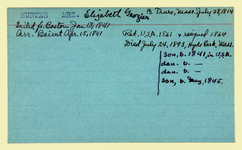 HURTER MRS. Elizabeth Grozier B. Truro, Mass. July 28, 1814
Sailed fr. Boston Jan. 18, 1841
Arr. Beirut Apr. 15, 1841
Ret. U.S.A. 1861 & resigned 1864
Died July 24, 1893, Hyde Park, Mass.
son, b. 1841, in U.S.A.
dau. b. —
dau. b. —
son, b. May, 1845.